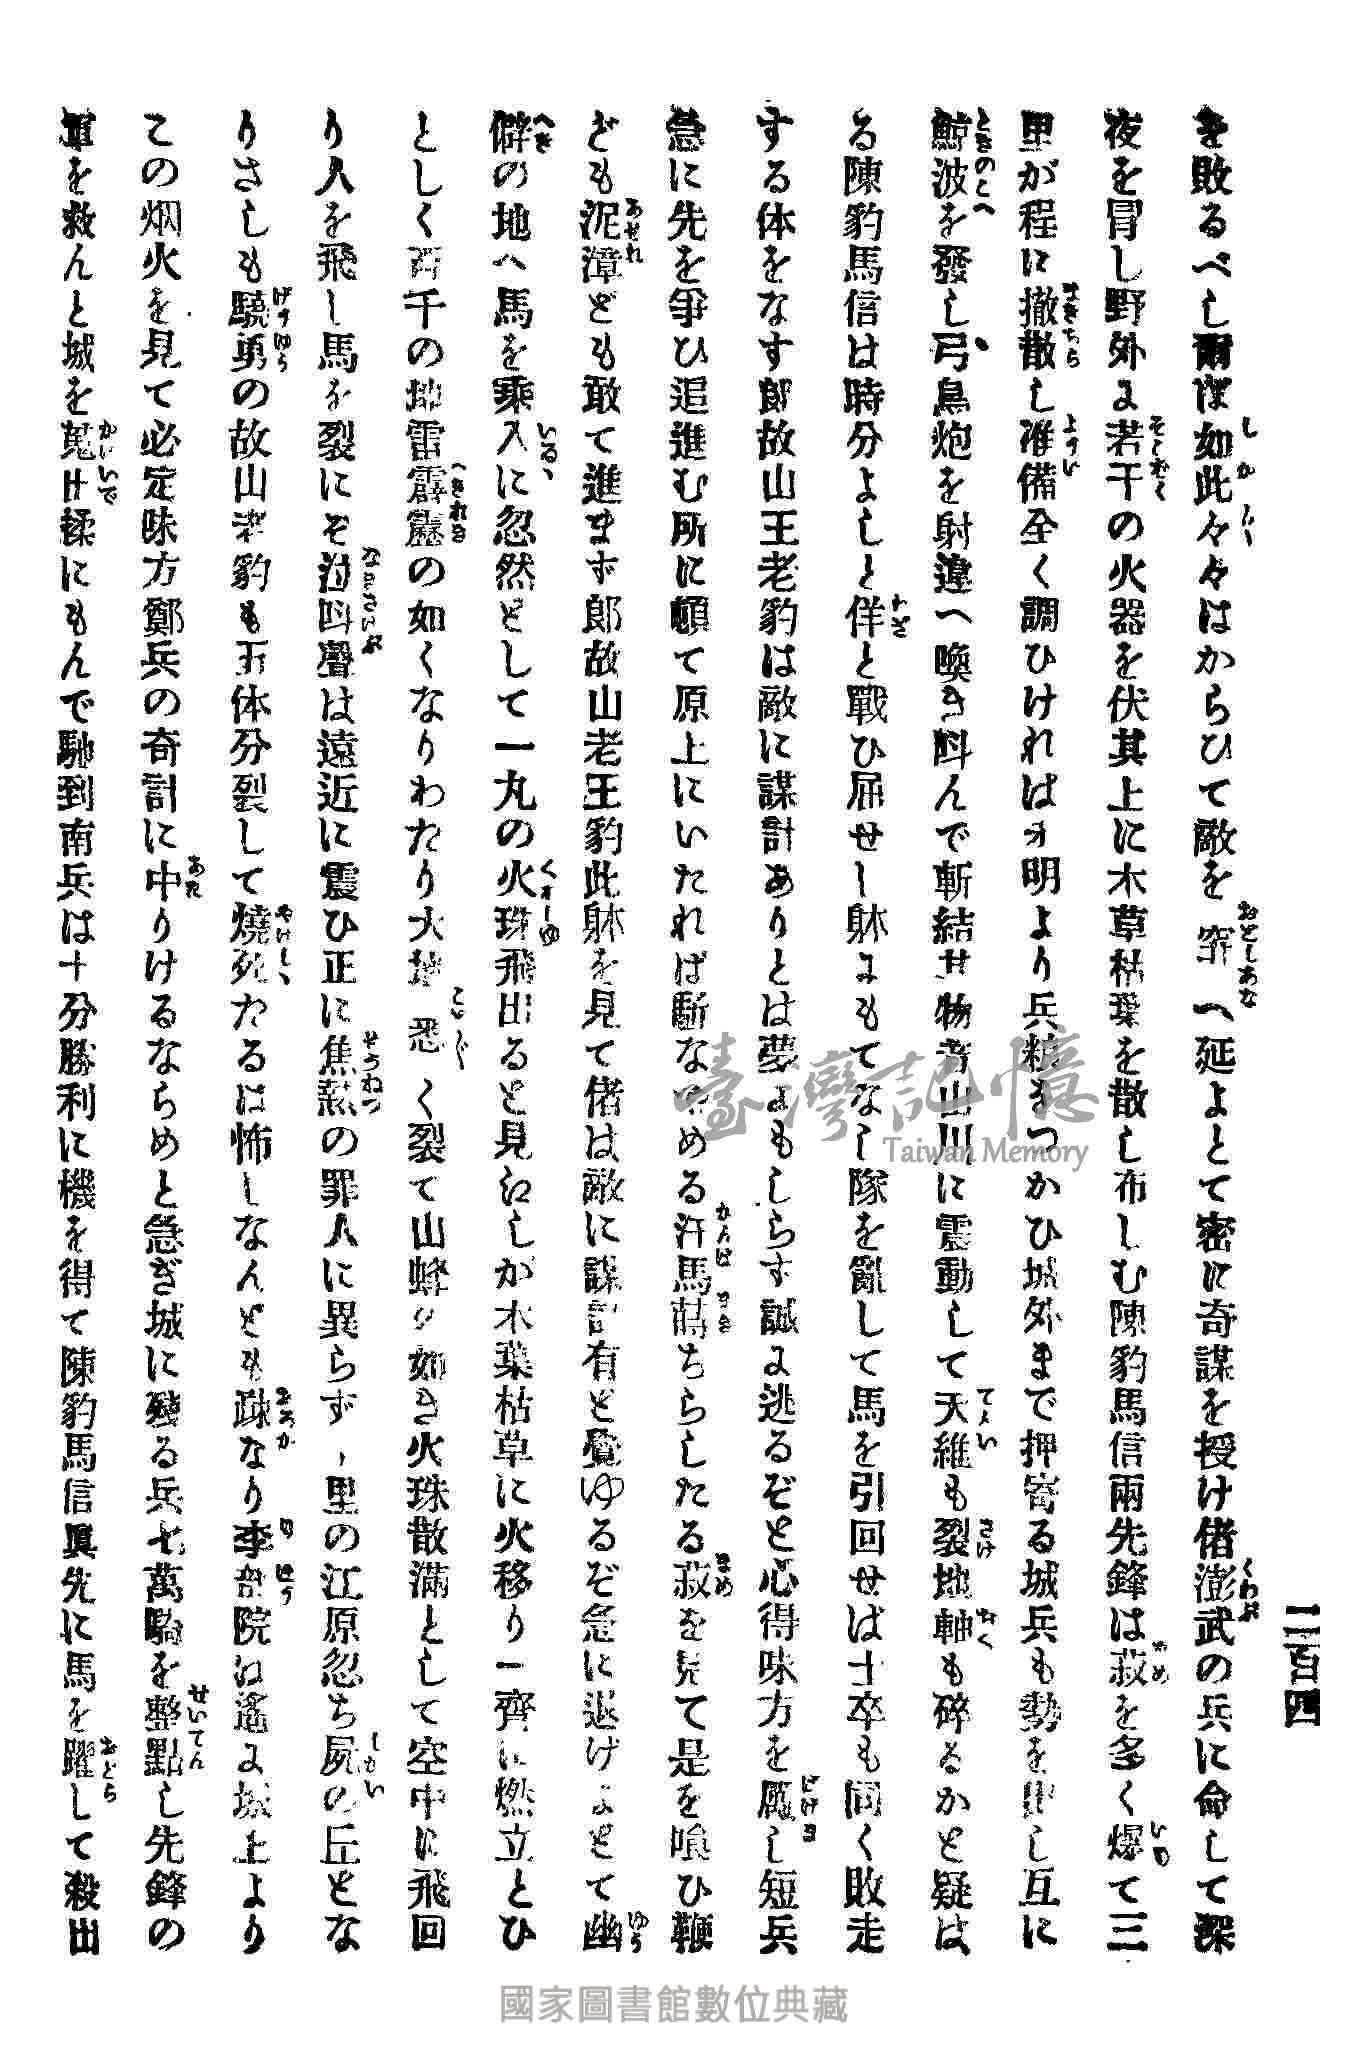 二百四
を敗るべし爾等如此々々はからひて敵を穽へ延よとて密に奇謀を授け偖澎武の兵に命して深
夜を冒し野外に若干の火器を伏其上に木草枯葉を散し布しむ陳豹馬信兩先鋒は菽を多く爆て三
里が程に撤散し准備全く調ひければ才明より兵粮をつかひ城外まで押寄る城兵も勢を出し互に
鯨波を發し弓鳥炮を射違へ喚き叫んで斬結ぶ物音山川に震動して天維も裂地軸も碎るかと疑は
る陳豹馬信は時分よしと佯と戰ひ屈せし躰にもてなし隊を亂して馬を引回せば士卒も同く敗走
する体をなす郎故山王老豹は敵に謀計ありとは夢にもしらす誠に逃るぞと心得味方を厲し短兵
急に先を爭ひ追進む所に頓て原上にいたれば斷なやめる汗馬蒔ちらしたる菽を見て是を喰ひ鞭
ども泥漳ども敢て進まず郎故山老王豹此躰を見て偖は敵に謀計有と覺ゆるぞ急に退げよとて幽
僻の地へ馬を乘入に忽然として一丸の火珠飛出ると見えしが木葉枯草に火移り一齊に燃立とひ
としく百千の地雷霹靂の如くなりわたり大地悉く裂て山蜂の如き火珠散滿として空中に飛回
り人を飛し馬を裂にぞ泣叫聲は遠近に震ひ正に焦熱の罪人に異らず、里の江原忽ち屍の丘とな
りさしも驍勇の故山老豹も五体分裂して燒死たるは怖しなんども疎なり李部院は遙に城上より
この烟火を見て必定味方鄭兵の奇計に中りけるならめと急ぎ城に殘る兵七萬騎を整點し先鋒の
軍を救んと城を蒐出揉にもんで馳到南兵は十分勝利に機を得て陳豹馬信眞先に馬を躍して殺出
臺灣記憶
Taiwan Memory
國家圖書館數位典藏